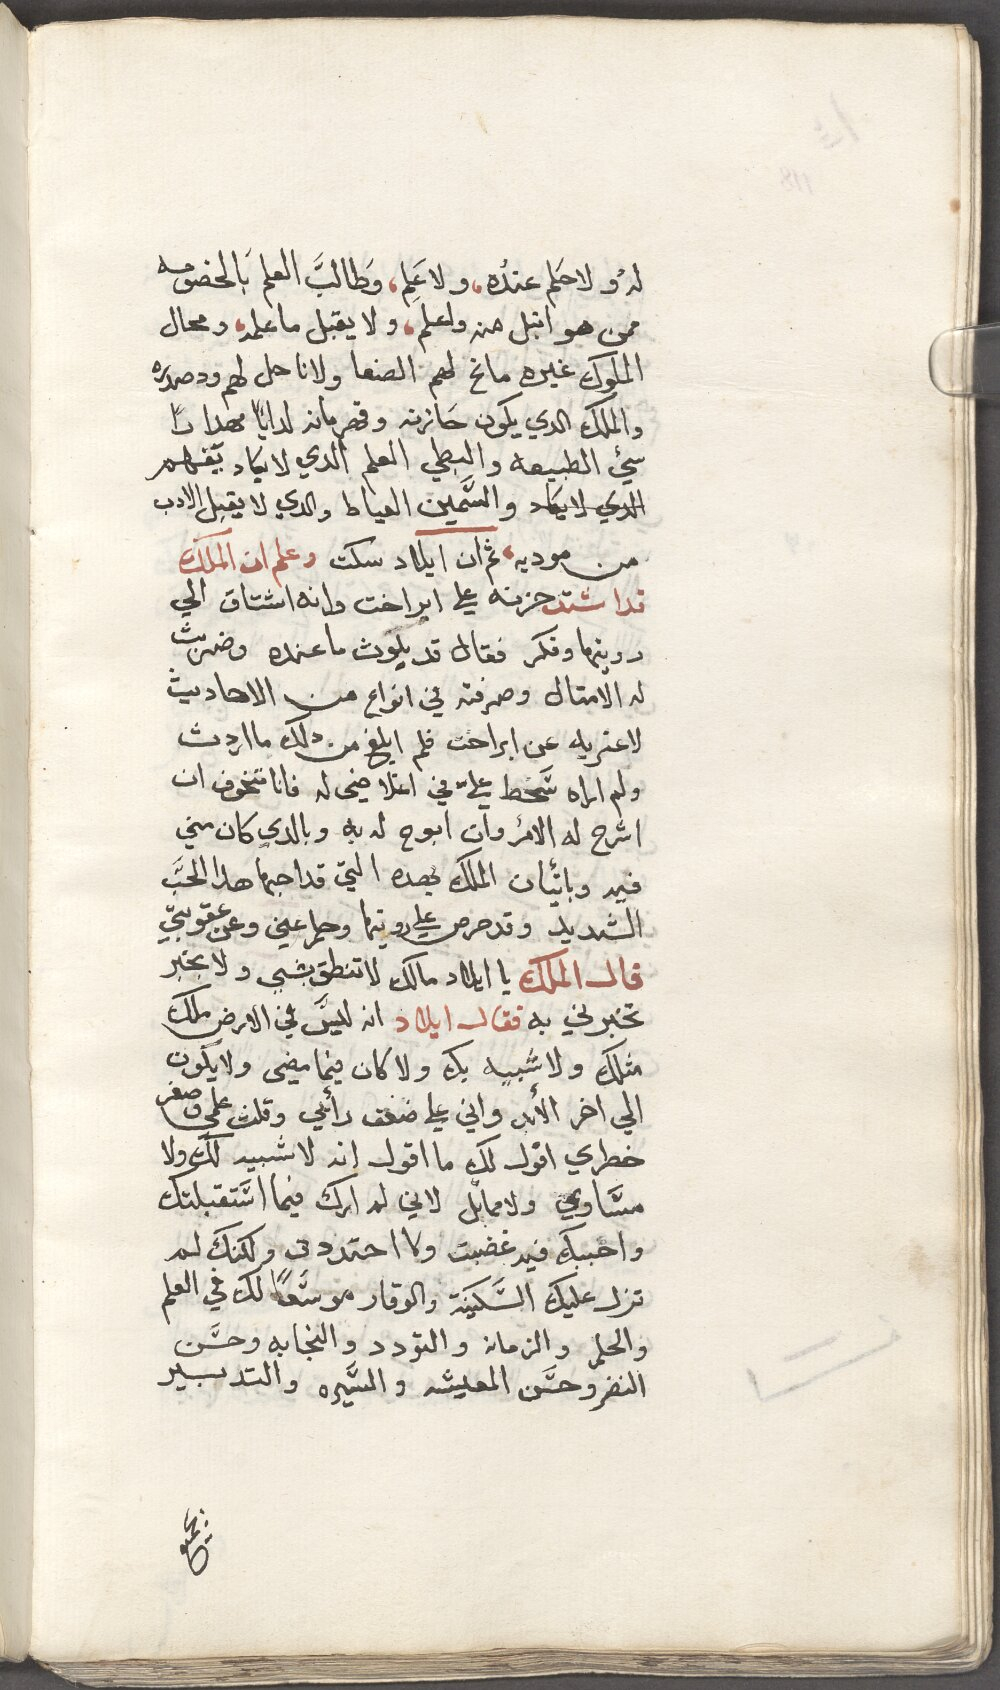 له ولا حكم عنده، ولا عَلِم، وَطالبَّ العلم بَالخصومه
ممن هو انبل منه واعلم، ولا يقبل ما علمه، ومحال
الملوك غيره مانح لهم الصنعا ولا ناحل لهم ودصدره
والملك الدي يكون خازنه وقهرمانه لدابًا مهدارًا
سيّ الطبيعه والبطي العلم الدي لا يكاد يتفهم
الدي لا يكاد والسَّمين العياط والدي لا يقبل الادب
من موديه، ثم ان ايلاد سكت وعلم ان الملك
قد اشتد حزنه علي ايراخت وانه اشتاق الي
رويتها وفكر فقال قد بلوت ما عنده وضربت
له الامتال وصرفته في انواع من الاحاديث
لاعتر به عن ايراخت فلم ابلغ من دلك ما اردت
ولم اراه سَخط عليَّ في اغلاضي له فانا نتخوف ان
اشرح له الامر وان ابوح له به وبالدي كان مني
فيه وباتيان الملك بهده التي قد احبها هدا الحبَّ
الشديد وقد حرص علي رويتها وحلم عني وعن عقوبتي
قال الملك يا ايلاد مالك لا تنطق بشي ولا بخبر
تخبرني به فقال ايلاد انه لليسَّ في الارض ملك
مثلك ولا شبيه بك ولا كان فيما مضي ولا يكون
الي اخر الأبد واني علي ضعف رأيي وقلت علمي وصغر
خطري اقول لك ما اقول انه لا شبيه لك ولا
مسَّاوي ولا مماتل لاني لم ارك فيما اسَّتقبلتك
واجبتك فيه غضبت ولا احتددت ولكنك لم
تزل عليك السَّكينة والوقار موسَّعًا لك في العلم
والحلم والزمانه والتودد والنجابه وحسَّن
النضر وحسَّن المعيشه والسَّيره والتدبير
بجميع